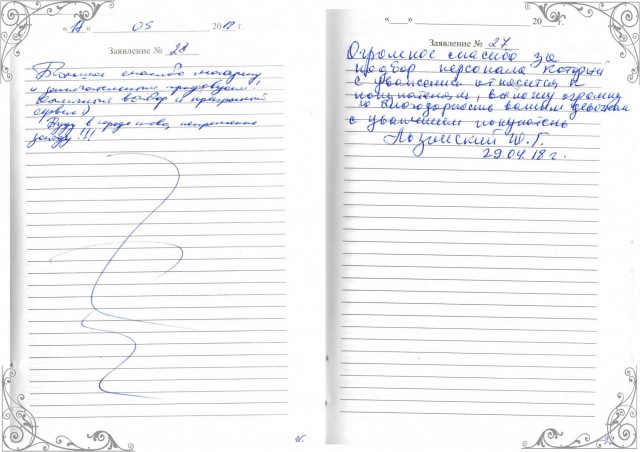 05 20 г.
Заявление № 28
Большое спасибо магазину
и продавцам.
Отличный выбор и прекрасный
сервис!
Буду в городе снова, непременно
зайду!!!
« » 20 г.
Заявление № 27
Огромное спасибо за
подбор персонала который
с уважением относится к
покупателям, выношу огромну
ю благодарность вашим девочкам
с уважением покупатель
Лозинский
29.04.18 г.